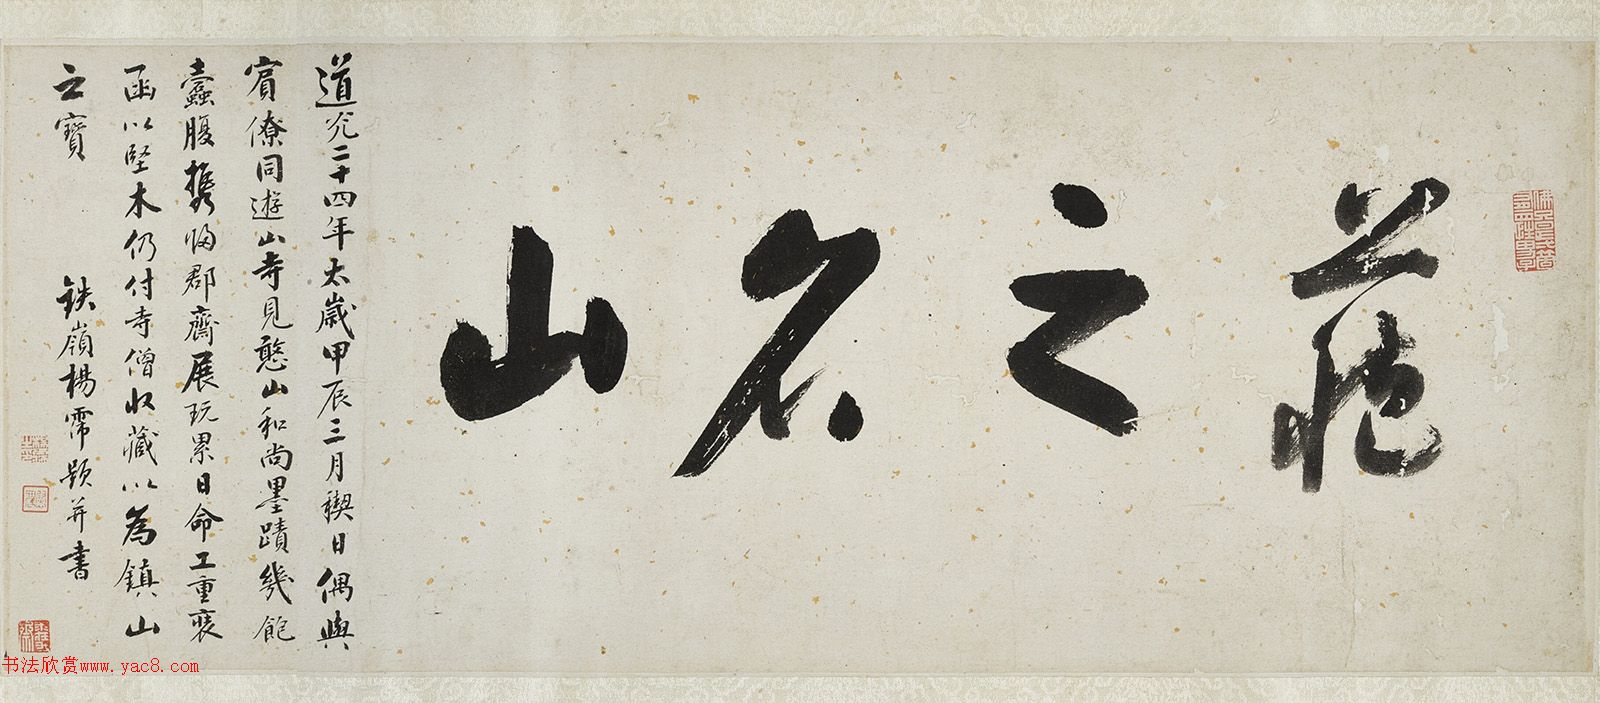 藏之名山
道光二十四年太歲甲辰三月禊日偶與
賓僚同遊山寺見憨山和尚墨蹟幾飽
蠹腹攜歸郡齋展玩累日命工重裝
函以堅木仍付寺僧收藏以為鎮山
之寶
鉄嶺楊霈題并書
书法欣赏www.yac8.com